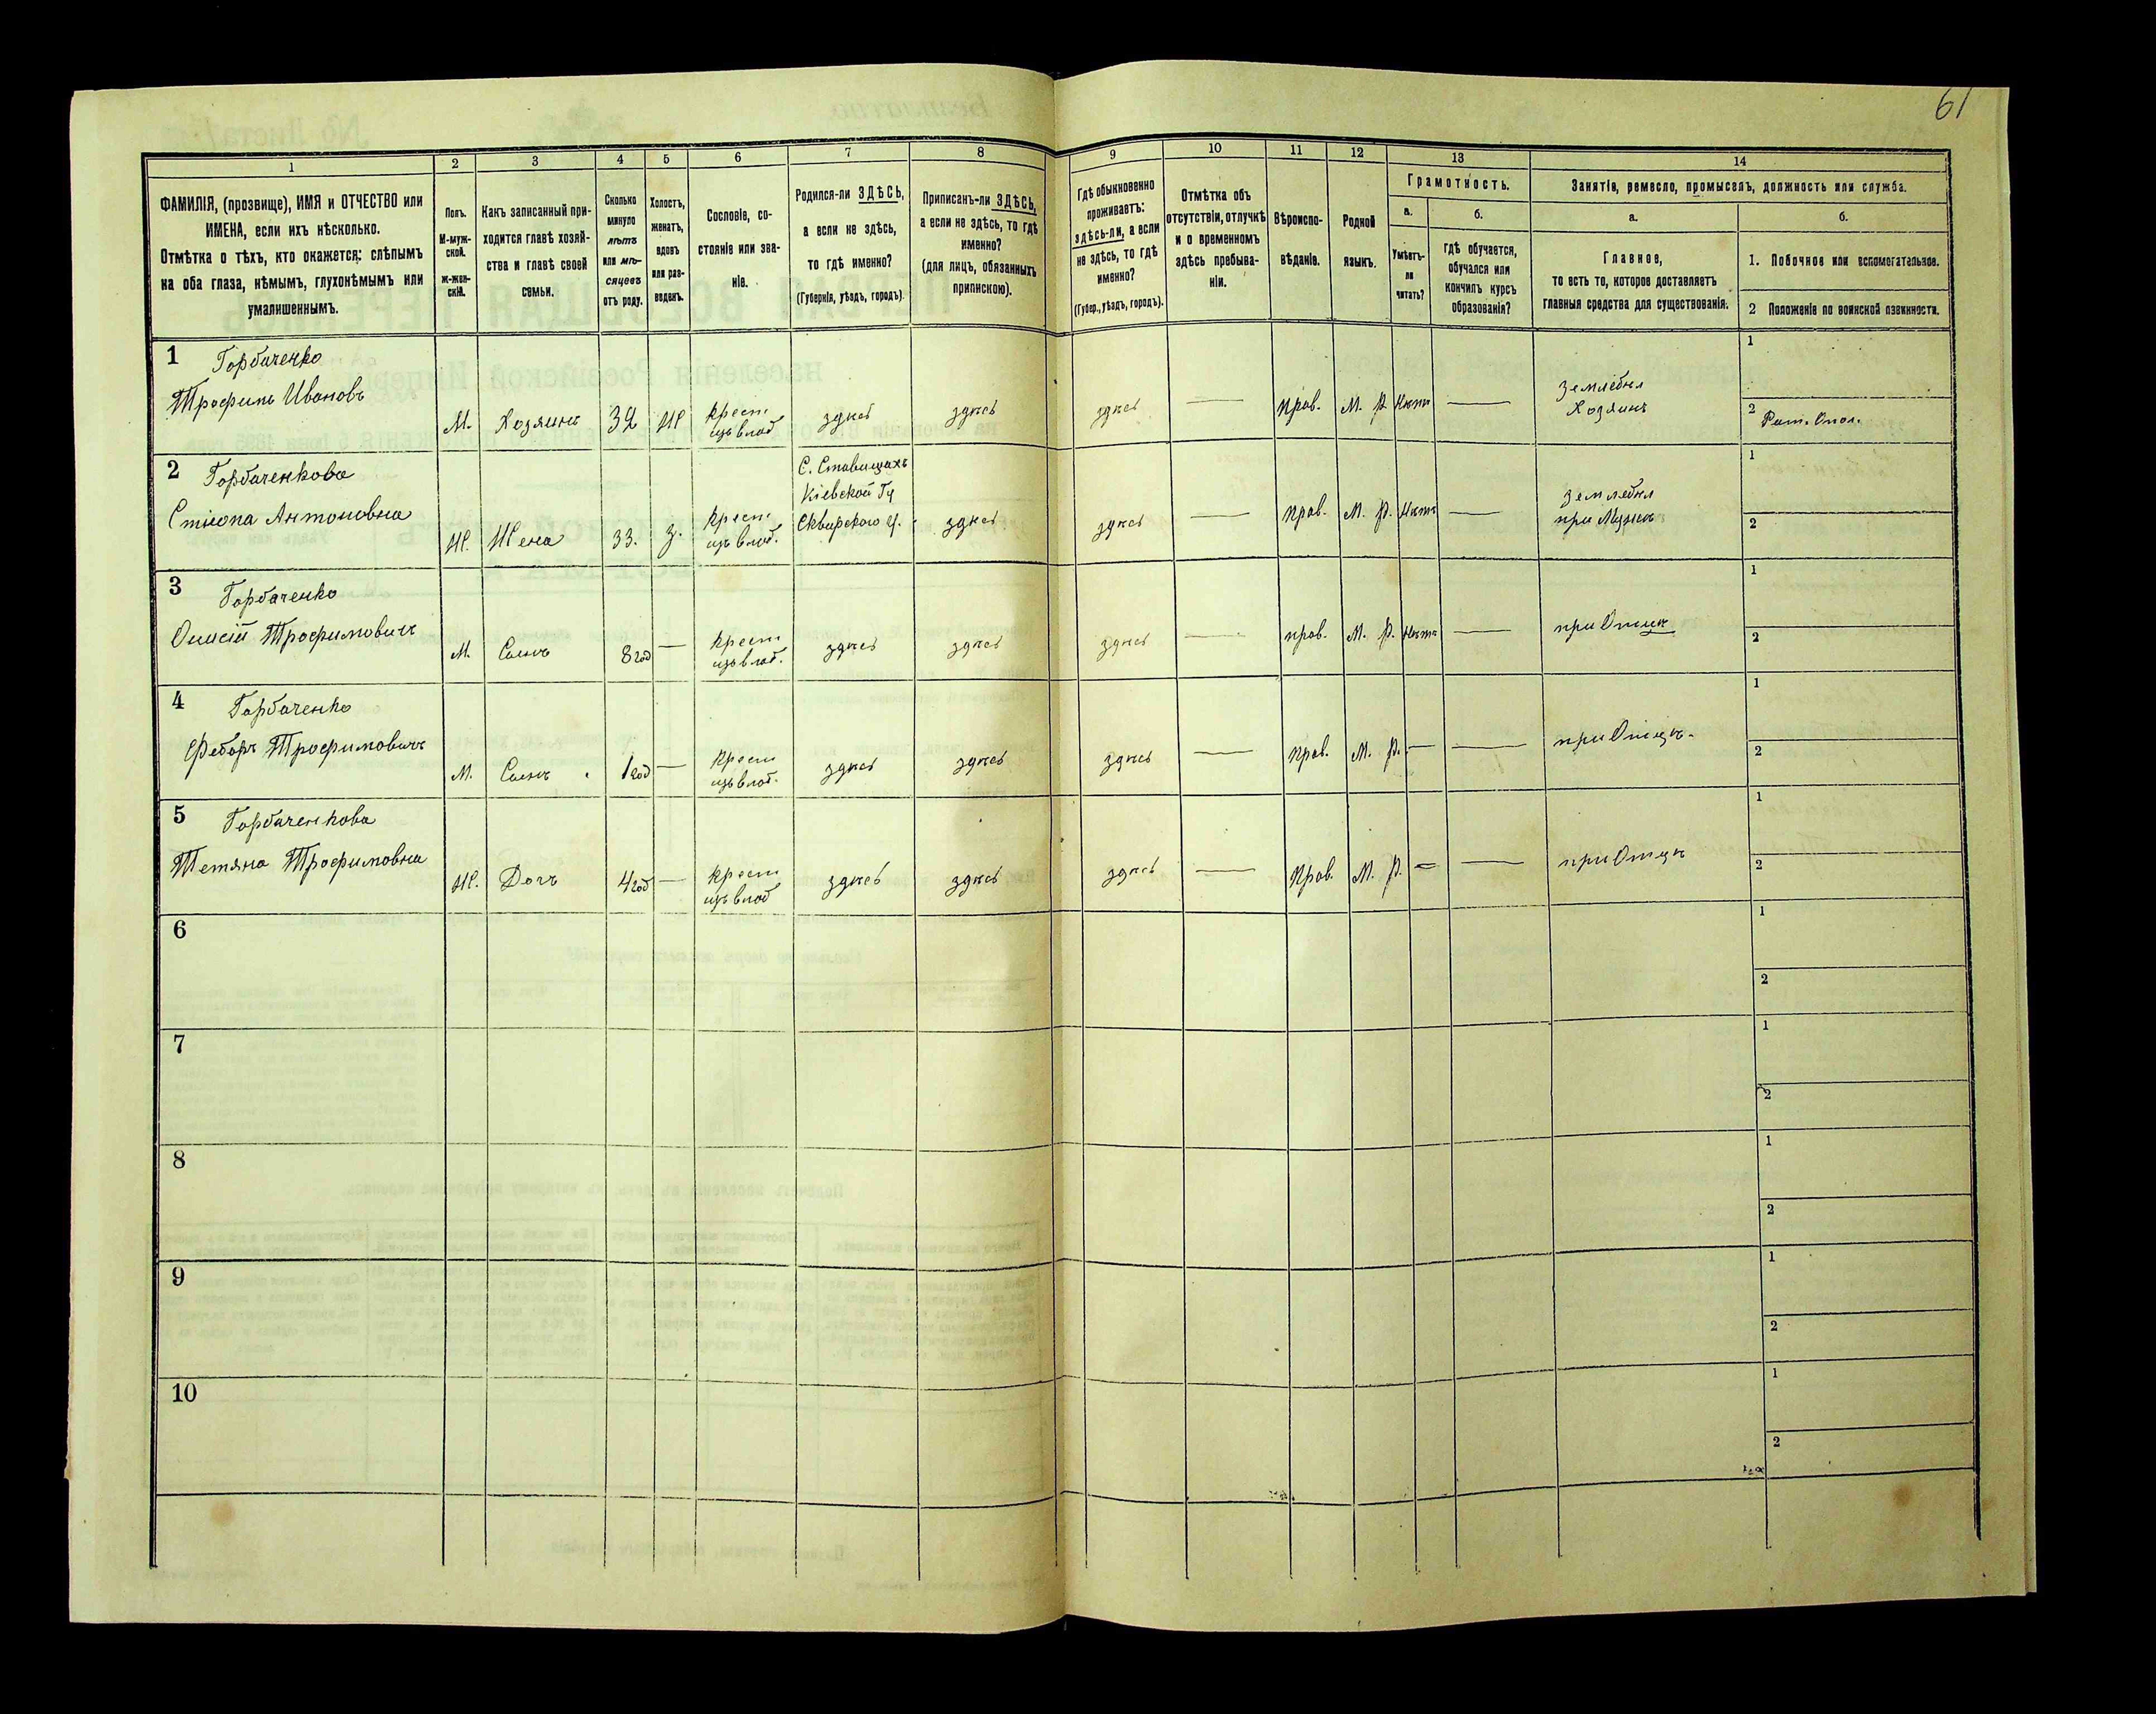 61
1
2
3
4
5
6
7
8
9
10
11
12
13
14
ФАМИЛІЯ, (прозвище), ИМЯ и ОТЧЕСТВО или
ИМЕНА, если ихъ нѣсколько.
Отмѣтка о тѣхъ, кто окажется: слѣпымъ
на оба глаза, нѣмымъ, глухонѣмымъ или
умалишеннымъ.
Полъ.
М-муж-
ской.
Ж-жен-
скій.
Какъ записанный при-
ходится главѣ хозяй-
ства и главѣ своей
семьи.
Сколько
минуло
лѣтъ
или мѣ-
сяцевъ
отъ роду.
Холостъ,
женатъ,
вдовъ
или раз-
веденъ.
Сословіе, со-
стояніе или зва-
ніе.
Родился-ли ЗДѢСЬ,
а если не здѣсь,
то гдѣ именно?
(Губернія, уѣздъ, городъ).
Приписанъ-ли ЗДѢСЬ,
а если не здѣсь, то гдѣ
именно?
(для лицъ, обязанныхъ
припискою).
Гдѣ обыкновенно
проживаетъ:
здѣсь-ли, а если
не здѣсь, то гдѣ
именно?
(Губер., уѣздъ, городъ).
Отмѣтка объ
отсутствіи, отлучкѣ
и о временномъ
здѣсь пребыва-
ніи.
Вѣроиспо-
вѣданіе.
Родной
языкъ.
Грамотность.
а.
б.
Умѣетъ-
ли
читать?
гдѣ обучается,
обучался или
кончилъ курсъ
образованія?
Занятіе, ремесло, промыселъ, должность или служба.
а.
б.
Главное,
то есть то, которое доставляетъ
главныя средства для существованія.
1. Побочное или вспомогательное.
2 Положеніе по воинской повинности.
1 Горбаченко
Трофимъ Ивановъ
М. Хозяинъ 32 Ж крест
изъ влад здѣсь здѣсь здѣсь — прав. М. Р. Нѣтъ — Землѣдѣл
Хозяинъ
1
2 Рат. Опол.
2 Горбаченкова
Антоновна
Ж. Жена 33. З. крест
изъ влад. С. Ставищахъ
Кіевской Гу
Сквирского у. здѣсь здѣсь — прав. М. Р. Нѣтъ — Землѣдѣл
при Мужѣ
1
2
3 Горбаченко
Трофимовичъ
М. Сынъ 8 год — крест
изъ влад. здѣсь здѣсь здѣсь — прав. М. Р. Нѣтъ — при Отцѣ
1
2
4 Горбаченко
Федоръ Трофимовичъ
М. Сынъ 1 год — крест
изъ влад. здѣсь здѣсь здѣсь — прав. М. Р. — — при Отцѣ.
1
2
5 Горбаченкова
Тетяна Трофимовна
Ж. Дочь 4 год — крест
изъ влад здѣсь здѣсь здѣсь — прав. М. Р. — — при Отцѣ
1
2
6
1
2
7
1
2
8
1
2
9
1
2
10
1
2